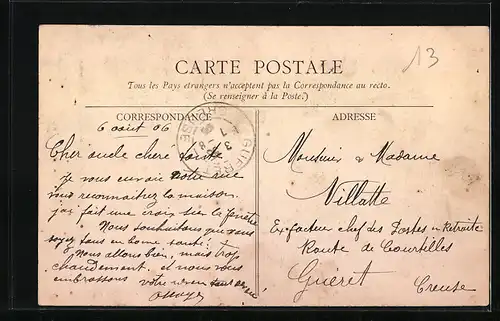 13
CARTE POSTALE
Tous les Pays étrangers n'acceptent pas la Correspondance au recto.
(Se renseigner à la Poste.)
CORRESPONDANCE
6 août 06
Cher oncle chere tante
je vous envoie notre rue
vous reconnaitrez la maison
jai fait une croix la fenêtre
Nous souhaitons que vous
soyez tous en bonne santé
Nous allons bien, mais trop
chaudement. et nous vous
embrassons votre neveu tout
GUERET
ADRESSE
Monsieur & Madame
Villatte
Ex-facteur chef des Postes en Retraite
Route de Courtilles
Guéret
Creuse